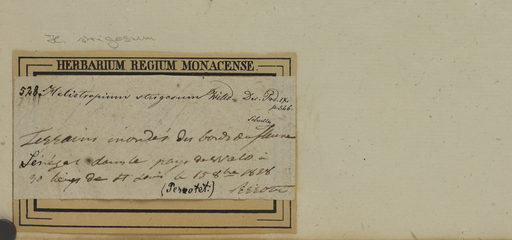 H. strigosum
HERBARIUM REGIUM MONACENSE.
528. Heliotropium strigosum Willd. = Dec. Prd. IX.
p. 546.
Terrains inondés des bords du fleuve
Sénégal dans le pays de Walo à
30 lieues de St Louis le 15 8bre 1828
(Perrotet.)